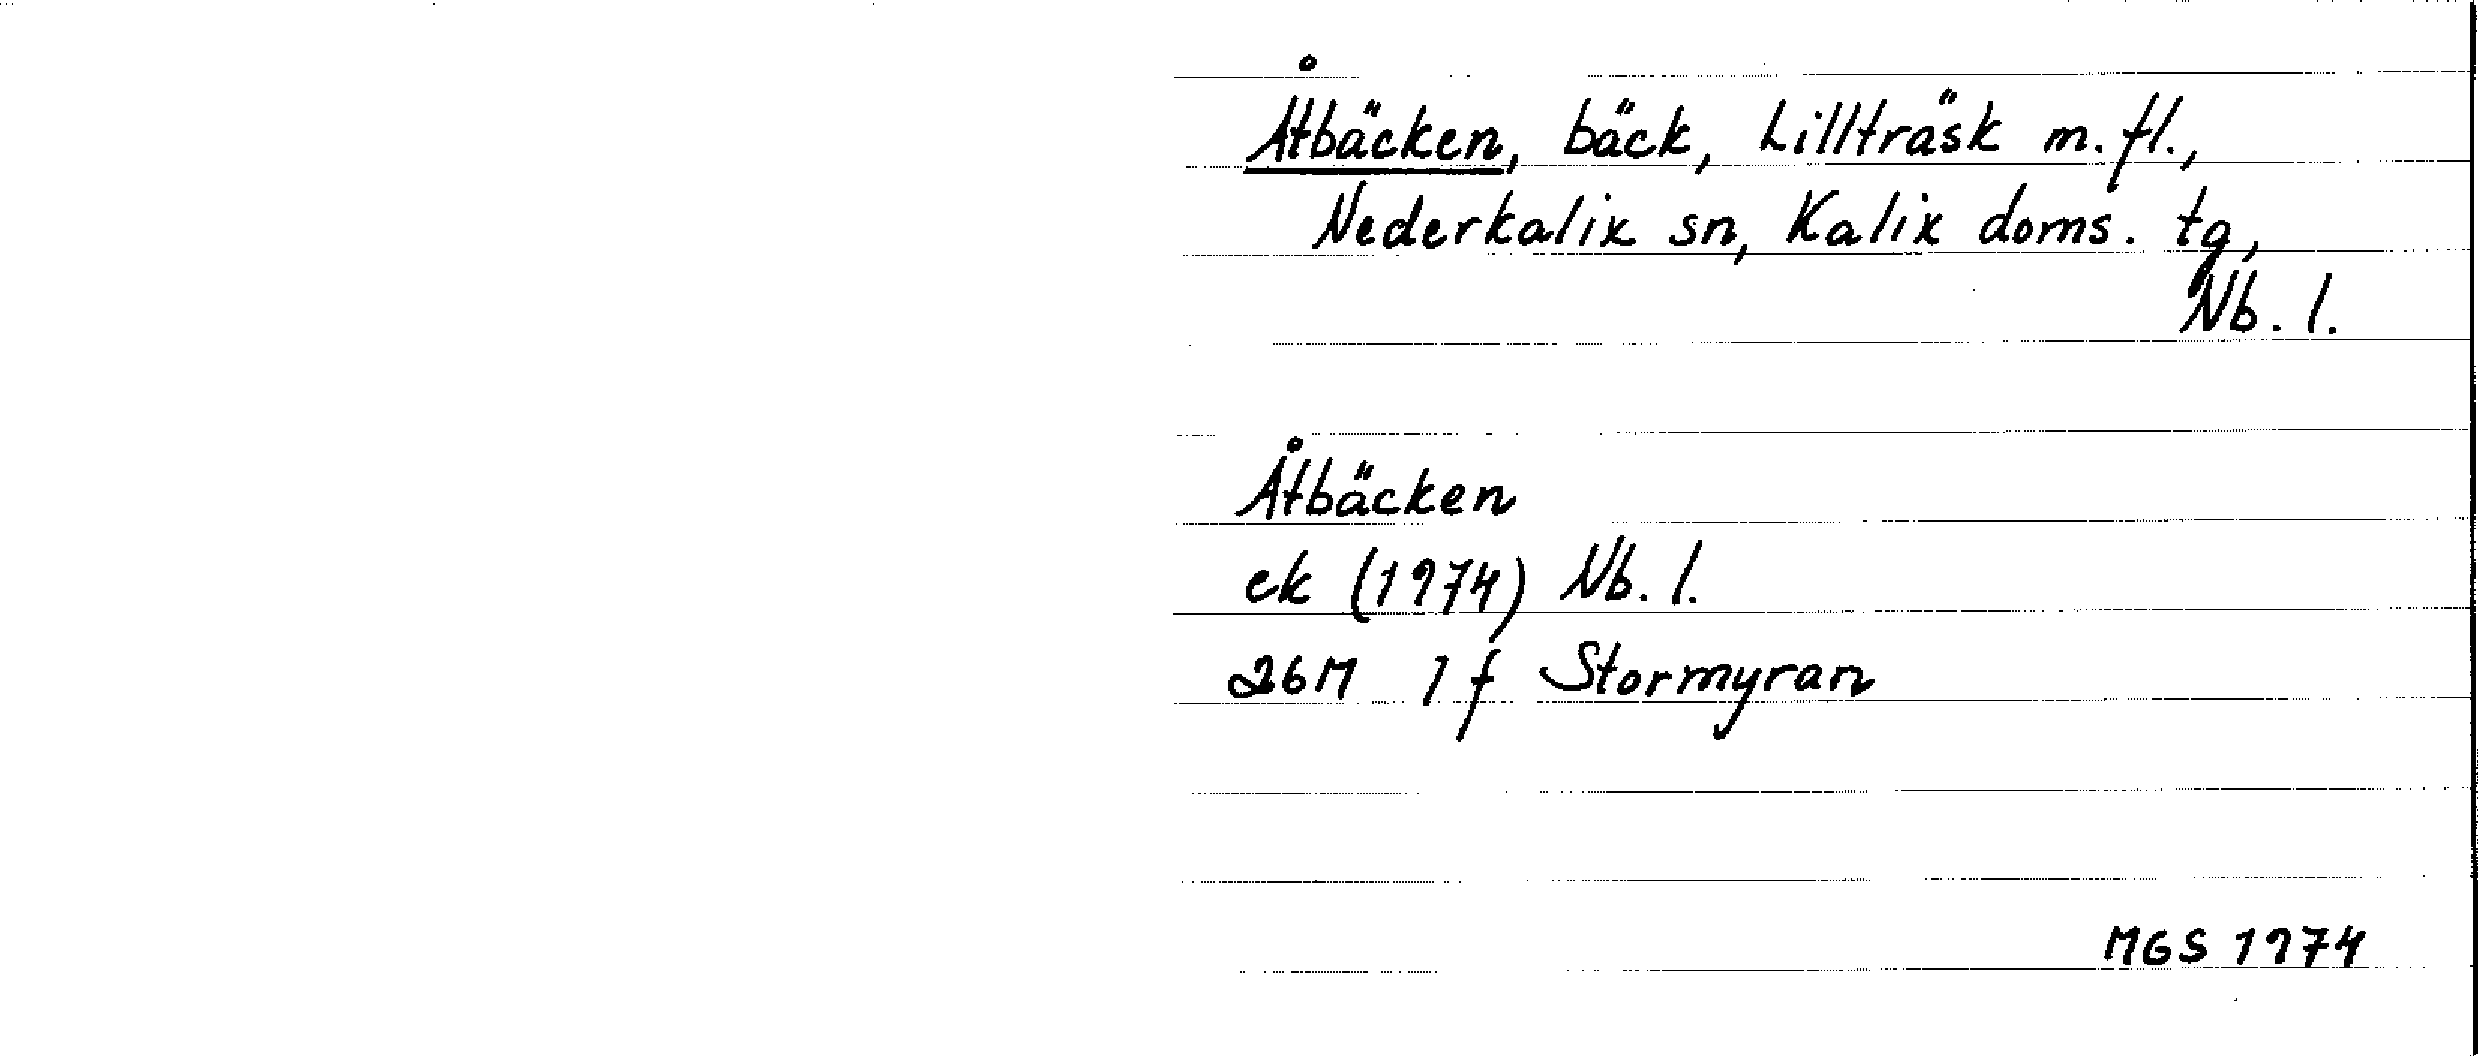 Åtbäcken, bäck, Lillträsk m.fl.,
Nederkalix sn, Kalix doms. tg,
Nb. l.
Åtbäcken
ek (1974) Nb. l.
26M 1f Stormyran
MGS 1974